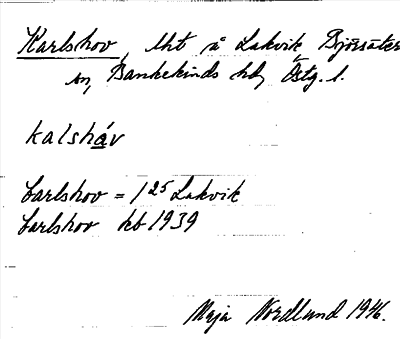 Karlshov, lht å Lakvik, Björsäter
sn, Bankekinds hd, Östg. l.
kalsháv
Carlshov = 1 25 Lakvik
Carlshov kb 1939
Maja Nordlund 1946.